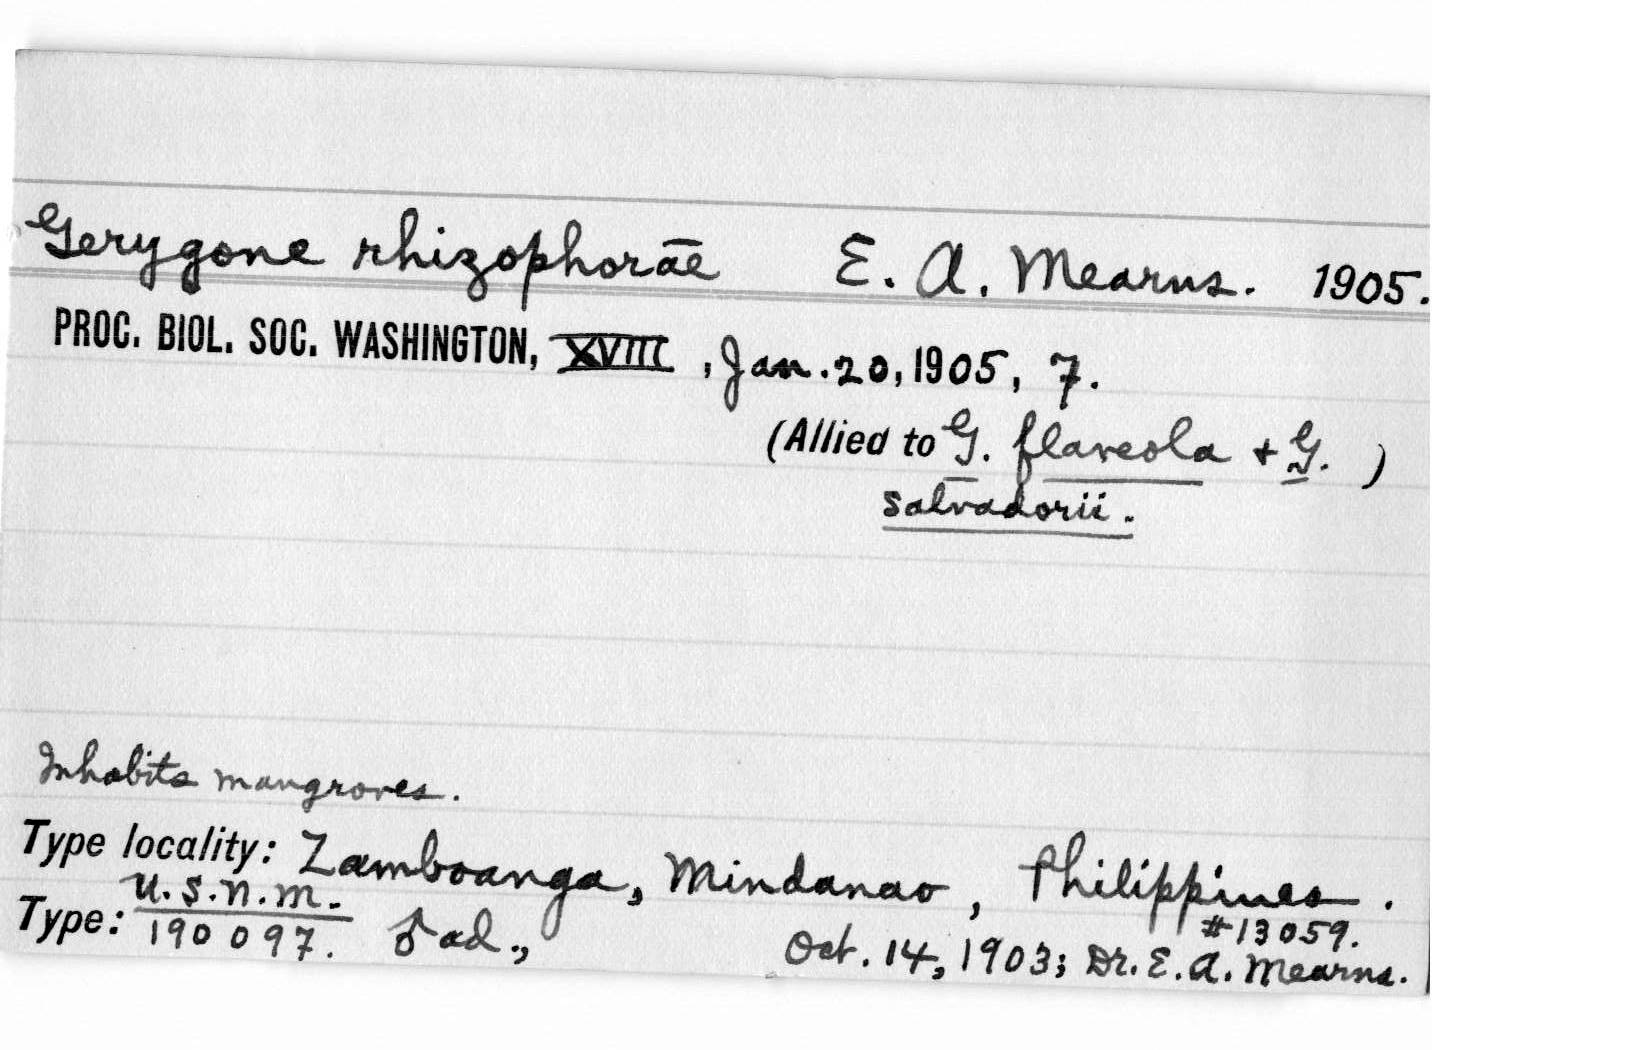 Gerygone rhizophorāe E. A. Mearns. 1905.
PROC. BIOL. SOC. WASHINGTON, XVIII, Jan. 20, 1905, 7.
(Allied to G. flaveola + G. )
salvadorii.
Inhabits mangroves.
Type locality: Zamboanga, Mindanao, Philippines.
U.S.N.M. #13059.
Type: 190097. ♂ ad., Oct. 14, 1903; Dr. E. A. Mearns.